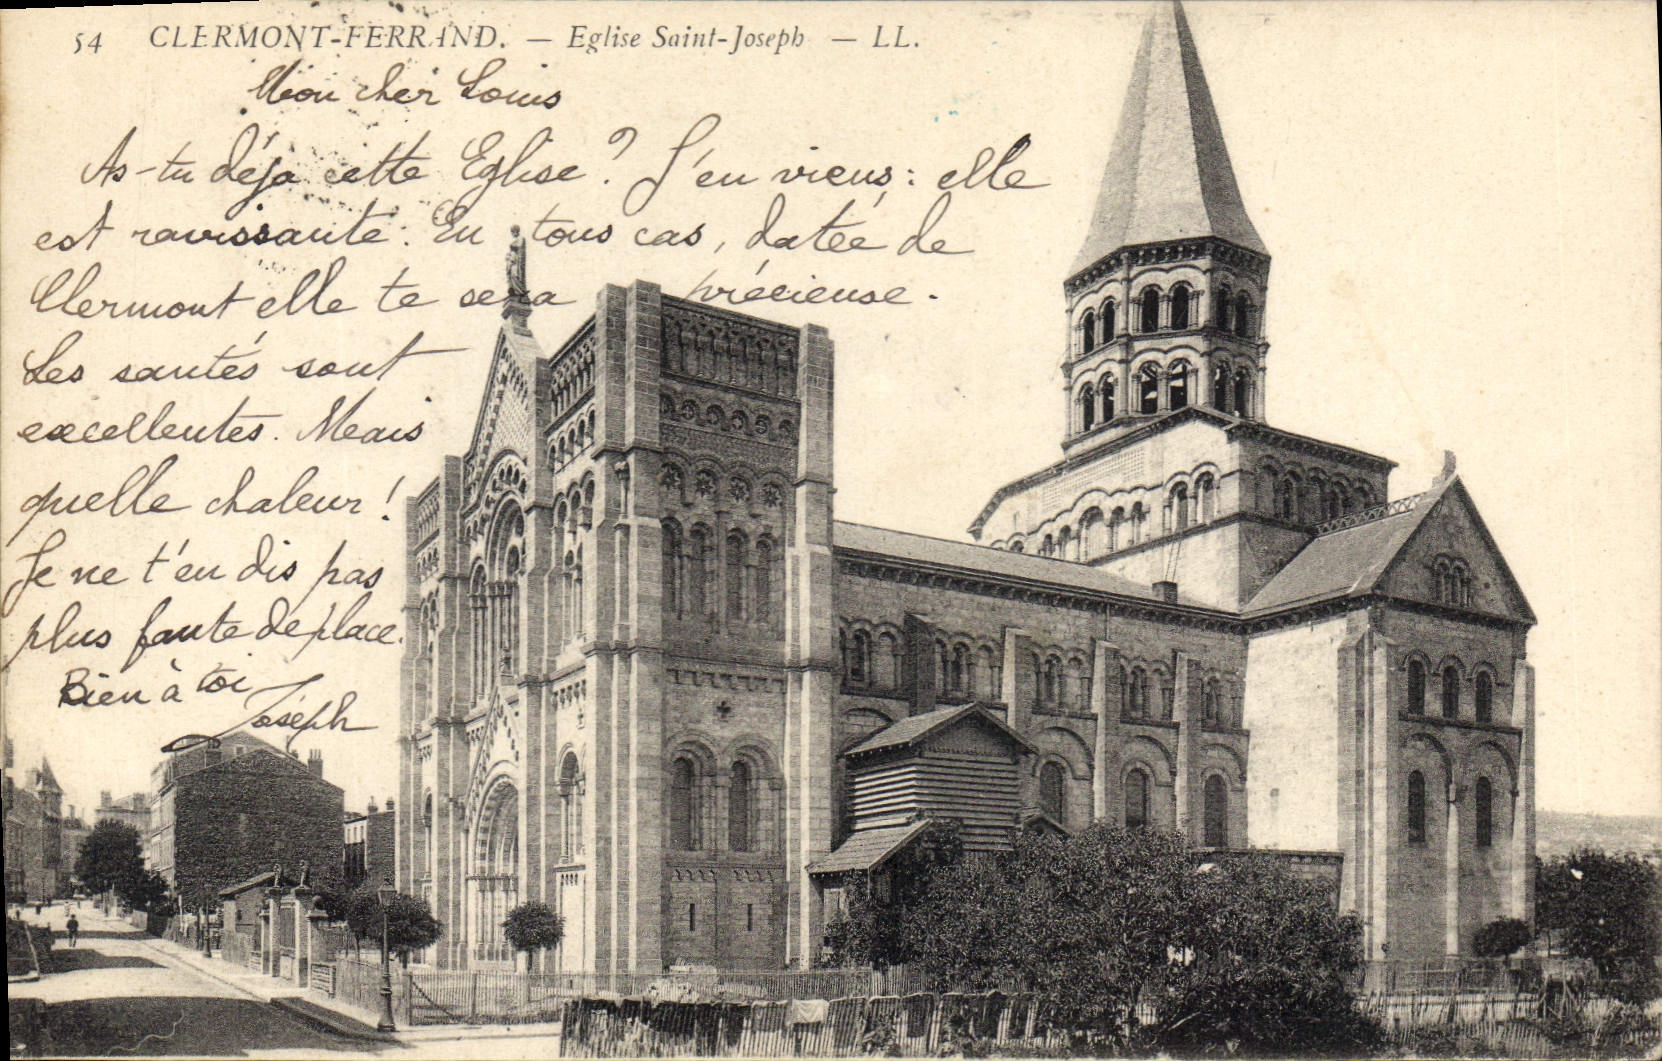 54 CLERMONT-FERRAND. — Eglise Saint-Joseph — LL.
Mon cher Louis
As-tu déjà cette Eglise ? J'en viens : elle
est ravissante. En tous cas, datée de
Clermont elle te sera précieuse.
Les santés sont
excellentes. Mais
quelle chaleur !
Je ne t'en dis pas
plus faute de place.
Bien à toi
Joseph